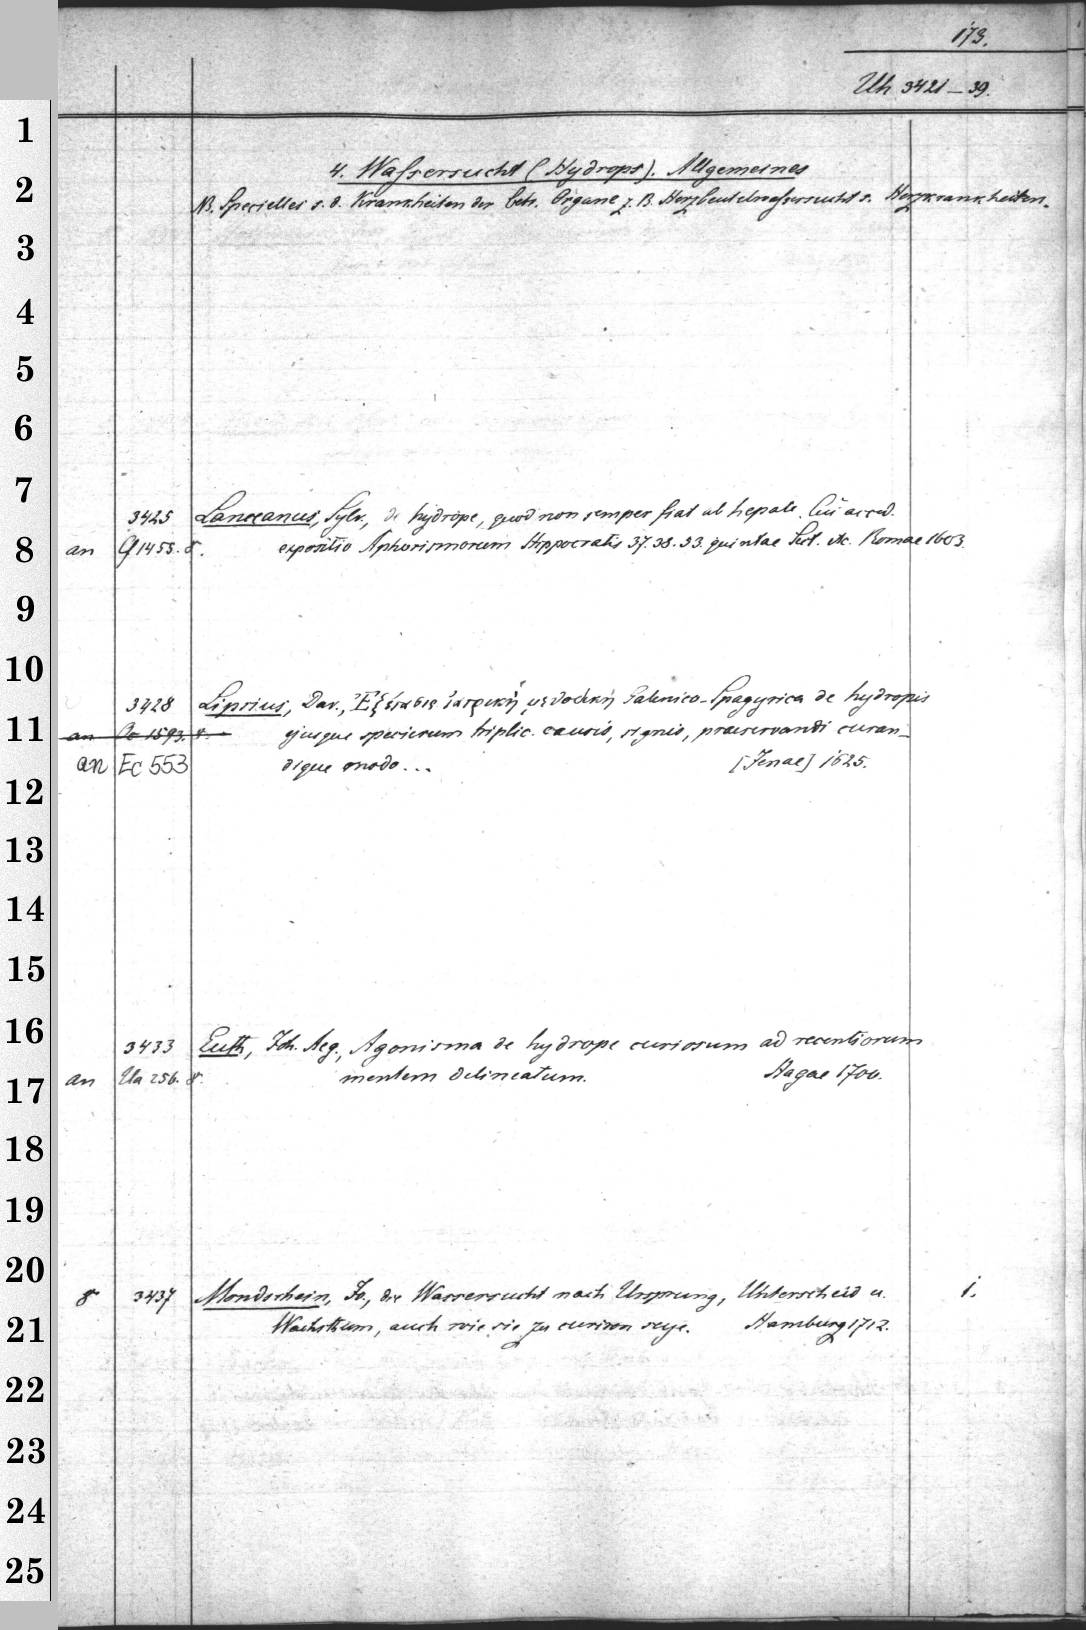 173.
Uh 3421-39.
4. Wassersucht (Hydrops). Allgemeines
NB. Specielles s. d. Krankheiten der betr. Organe z. B. Herzbeutelwassersucht s. Herzkrankheiten.
3425 Lanceanus, Sylv., de hydrope, quod non semper fiat ab hepate. Cui acced.
an 1455. 8. expositio Aphorismorum Hippocratis 37. 38. 33. quintae Sect. etc. Romae 1603.
3428 Liprius, Dav., Ἐξέτασις ἰατρικὴ Galenico-Spagyrica de hydropis
an 1593. 8. ejusque specierum triplic. causis, signis, praeservandi curan-
an Ec 553 dique modo... [Jenae] 1625.
3433 Euth, Joh. Aeg., Agonisma de hydrope curiosum ad recentiorum
an Ua 256. 8. mentem delineatum. Hagae 1700.
8 3437 Mondschein, Fr., die Wassersucht nach Ursprung, Unterscheid u. 1.
Wachsthum, auch wie sie zu curiren seye. Hamburg 1712.
1
2
3
4
5
6
7
8
9
10
11
12
13
14
15
16
17
18
19
20
21
22
23
24
25